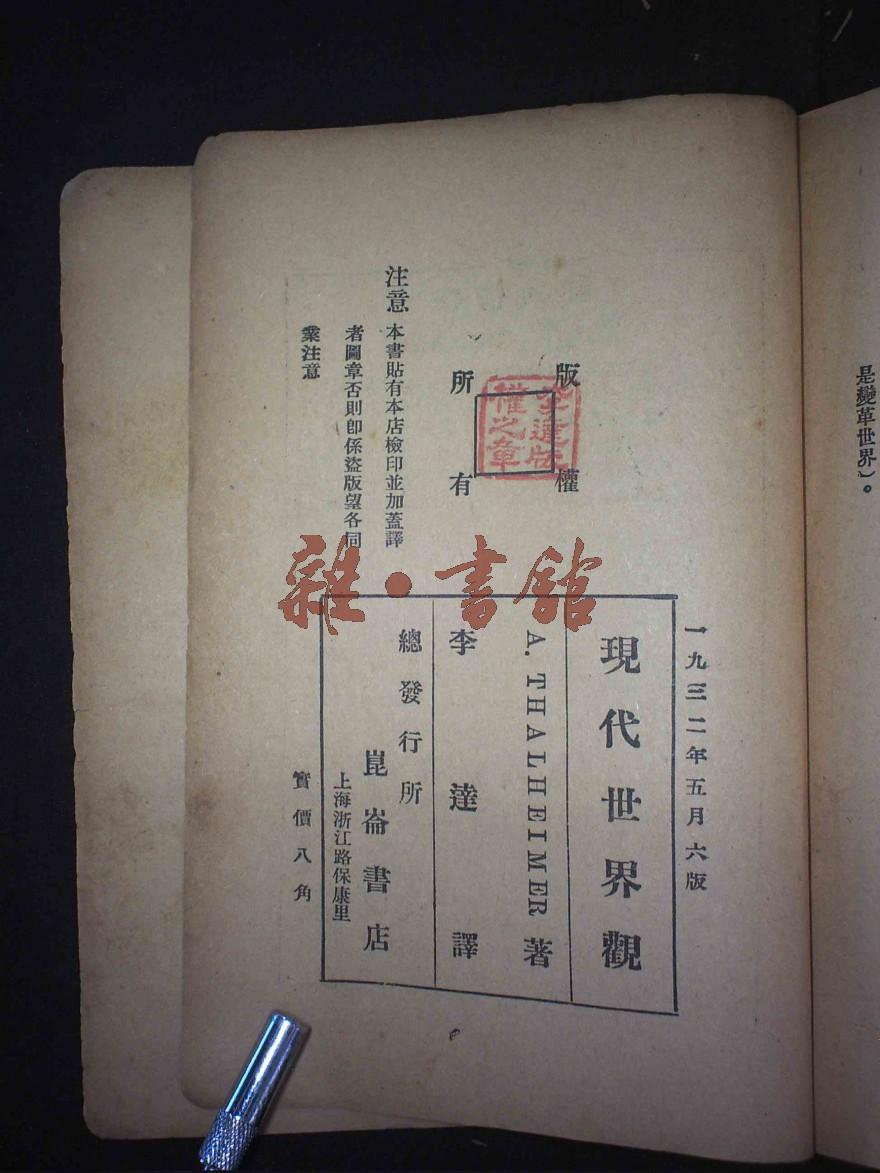 是變革世界）。
一九三二年五月六版
現代世界觀
A. THALHEIMER 著
李達譯
總發行所
崑崙書店
上海浙江路保康里
實價八角
版權
所有
李達版
權之章
注意
本書貼有本店檢印並加蓋譯
者圖章否則卽係盜版望各同
業注意
雜·書館